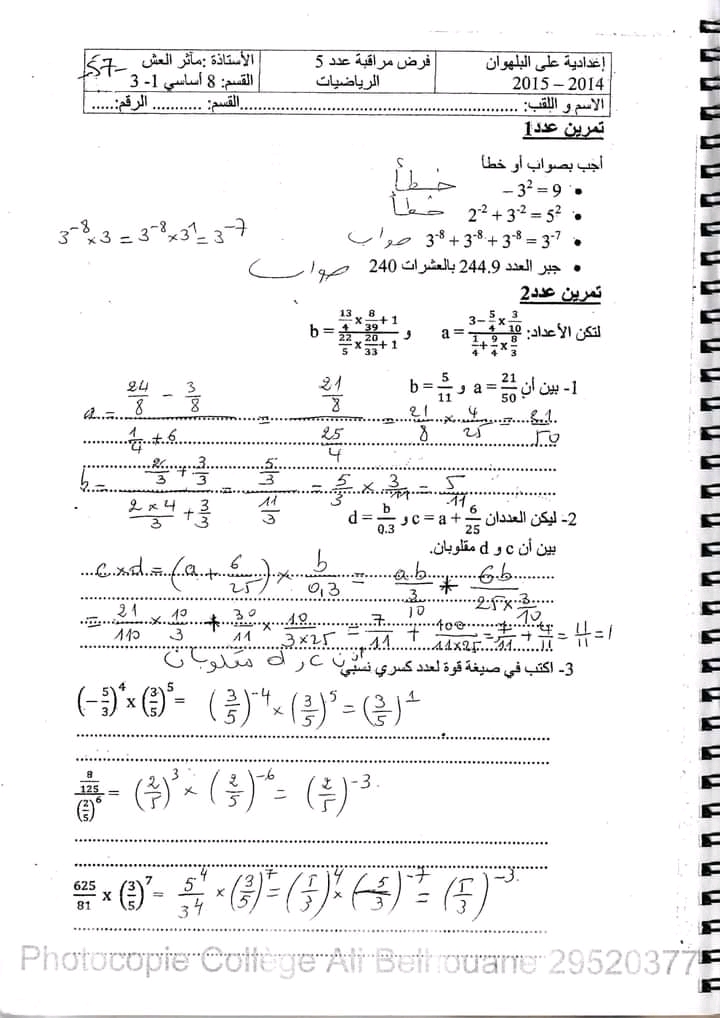 إعدادية على البلهوان فرض مراقبة عدد 5 الأستاذة :مآثر العش
2014 – 2015 الرياضيات القسم: 8 أساسي 1- 3
الاسم و اللقب:........................................القسم: ........... الرقم:......
تمرين عدد1
أجب بصواب أو خطأ
• – 3² = 9 خطأ
• 2⁻² + 3⁻² = 5² خطأ
• 3⁻⁸ + 3⁻⁸ + 3⁻⁸ = 3⁻⁷ صواب 3⁻⁸ × 3 = 3⁻⁸ × 3¹ = 3⁻⁷
• جبر العدد 244.9 بالعشرات 240 صواب
تمرين عدد2
لتكن الأعداد: a = (3 − 5/4 × 3/10) / (1/4 + 9/4 × 8/3) و b = (13/4 × 8/39 + 1) / (22/5 × 20/33 + 1)
1- بين أن a = 21/50 و b = 5/11
a = (24/8 − 3/8) / (1/4 + 6) = (21/8) / (25/4) = 21/8 × 4/25 = 21/50
b = (2/3 + 3/3) / (2×4/3 + 3/3) = (5/3) / (11/3) = 5/3 × 3/11 = 5/11
2- ليكن العددان c = a + 6/25 و d = b/0.3
بين أن c و d مقلوبان.
c × d = (a + 6/25) × b/0,3 = ab/(3/10) + 6b/(25 × 3/10)
= 21/110 × 10/3 + 30/11 × 10/(3×25) = 7/11 + 100/(11×25) = 7/11 + 4/11 = 11/11 = 1
إذن c و d مقلوبان
3- اكتب في صيغة قوة لعدد كسري نسبي
(−5/3)⁴ x (3/5)⁵ = (3/5)⁻⁴ × (3/5)⁵ = (3/5)¹
(8/125) / (2/5)⁶ = (2/5)³ × (2/5)⁻⁶ = (2/5)⁻³
625/81 x (3/5)⁷ = 5⁴/3⁴ × (3/5)⁷ = (5/3)⁴ × (5/3)⁻⁷ = (5/3)⁻³
Photocopie Collège Ali Belhouane 29520377